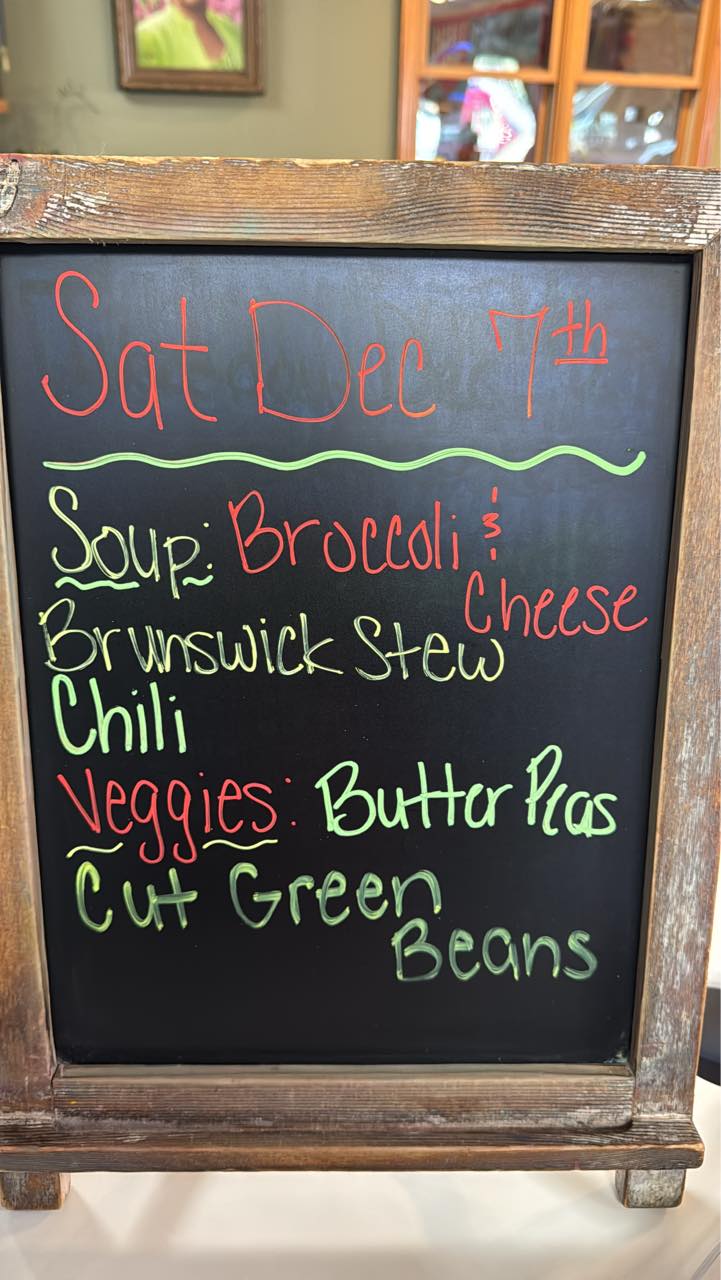 Sat Dec 7th
Soup: Broccoli &
Cheese
Brunswick Stew
Chili
Veggies: Butter Peas
Cut Green
Beans